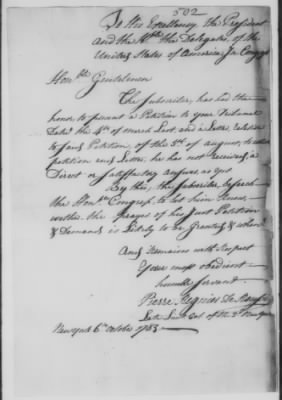 502
To His Excellency the President
and the Hble the Delegates, of the
United States of America In Congress
Honble Gentlemen
The Subscriber, has had the
honor to present a Petition to your
Dated the 4th of March Last, and a Letter, relative
to said Petition, of the 5th of august, to which
petition and Letter, he has not Received, a
Direct or Satisfactory answer, as yet
the Subscriber, beseech
the Honble Congress, to let him know,
the prayer of his Just Petition
& Demands is Likely to be Granted &
And Remains with Respect
Your most obedient
humble Servant
Pierre Regnier De
Late Lieut Col of the 2d
Newyork 6th October 1783